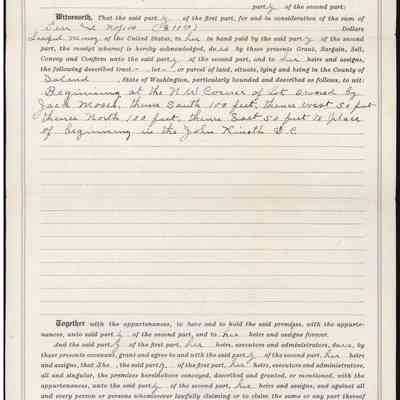 party of the second part:
Witnesseth, That the said party of the first part, for and in consideration of the sum of
Ten & no/100 Dollars
Lawful Money of the United States, to her in hand paid by the said party of the second
part, the receipt whereof is hereby acknowledged, does by these presents Grant, Bargain, Sell,
Convey and Confirm unto the said party of the second part, and to her heirs and assigns,
the following described tract lot or parcel of land, situate, lying and being in the County of
Island, State of Washington, particularly bounded and described as follows, to wit:
Beginning at the N.W Corner of Lot owned by
Jack Moses, thence South 100 feet, thence West 50 feet
thence North 100 feet, thence East 50 feet to place
of beginning in the John Kineth D C
Together with the appurtenances, to have and to hold the said premises, with the appurte-
nances, unto said party of the second part, and to her heirs and assigns forever.
And the said party of the first part, her heirs, executors and administrators, does, by
these presents covenant, grant and agree to and with the said party of the second part, her heirs
and assigns, that She, the said party of the first part, her heirs, executors and administrators,
all and singular, the premises hereinabove conveyed, described and granted, or mentioned, with the
appurtenances, unto the said party of the second part, her heirs and assigns, and against all
and every person or persons whomsoever lawfully claiming or to claim the same or any part thereof